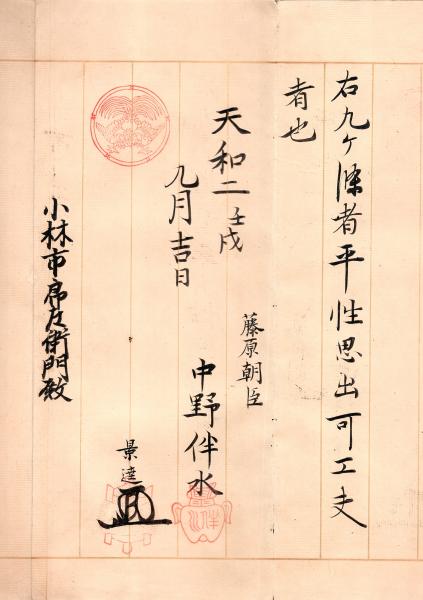 右九ケ條者平性思出可工夫
者也
天和二壬戌
九月吉日
藤原朝臣
中野伴水
景達
小林市席左衛門殿